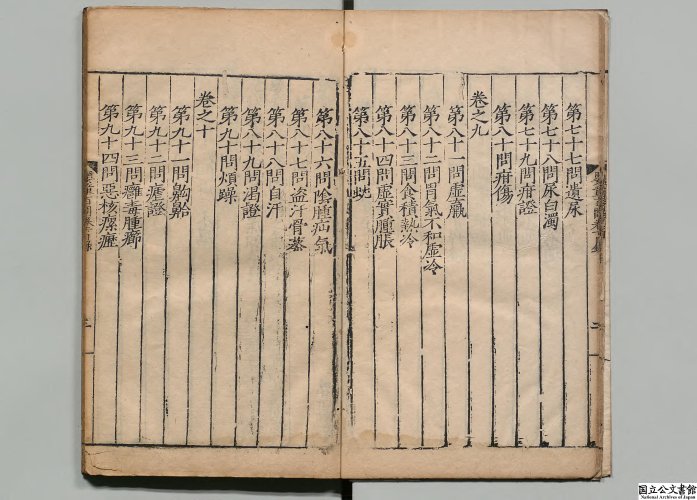 第七十七問遺尿
第七十八問尿白濁
第七十九問疳證
第八十問疳傷
卷之九
第八十一問虛羸
第八十二問胃氣不和虛冷
第八十三問食積熱冷
第八十四問虛實腫脹
第八十五問蚘
第八十六問陰腫疝氣
第八十七問盗汗骨蒸
第八十八問自汗
第八十九問渴證
第九十問煩躁
卷之十
第九十一問齁䶎
第九十二問瘧證
第九十三問癰毒腫癤
第九十四問惡核瘰癧
二
国立公文書館
National Archives of Japan